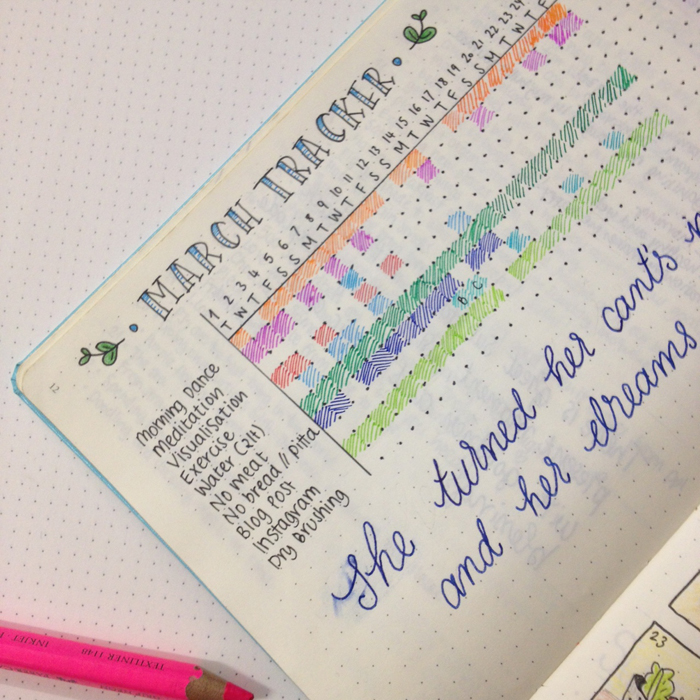 MARCH TRACKER
1 2 3 4 5 6 7 8 9 10 11 12 13 14 15 16 17 18 19 20 21 22 23 24
T W T F S S M T W T F S S M T W T F S S M T W T F
Morning Dance
Meditation
Visualisation
Exercise
Water (2lt)
No meat
No bread // pitta
Blog Post
Instagram
Dry Brushing
B C
She turned her cant's
and her dreams
12
23
TEXTLINER 1148
INKJET